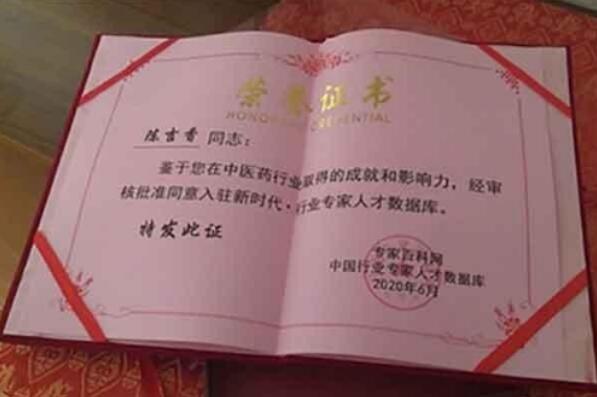 荣誉证书
HONOR CREDENTIAL
陈言香 同志：
鉴于您在中医药行业取得的成就和影响力，经审
核批准同意入驻新时代·行业专家人才数据库。
特发此证
专家百科网
中国行业专家人才数据库
2020年6月